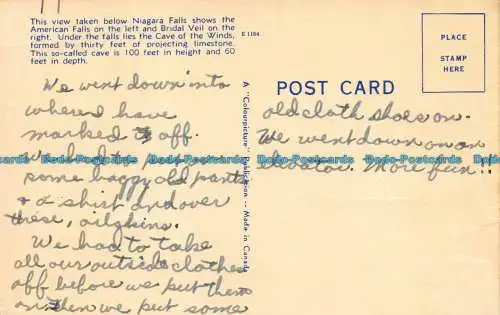 This view taken below Niagara Falls shows the
American Falls on the left and Bridal Veil on the
right. Under the falls lies the Cave of the Winds,
formed by thirty feet of projecting limestone.
This so-called cave is 100 feet in height and 60
feet in depth.
E 1184
PLACE
STAMP
HERE
POST CARD
A "Colourpicture" Publication -- Made in Canada
We went down into
where I have
marked it off.
We had to put on
some baggy old pants
& a shirt and over
these, oilskins.
We had to take
all our outside clothes
off before we put them
on then we put some
old cloth shoes on.
We went down on an
elevator. More fun!!
Dodo-Postcards Dodo-Postcards Dodo-Postcards Dodo-Postcards Dodo-Postcards